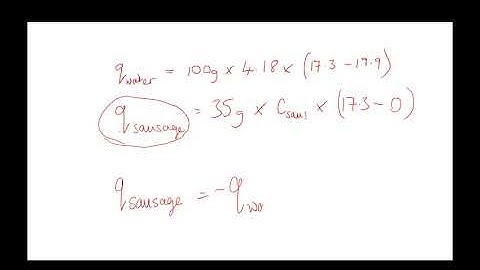 q water = 100g × 4.18 × (17.3 - 19.9)
q sausage = 35g × C saus × (17.3 - 0)
q sausage = -q wa